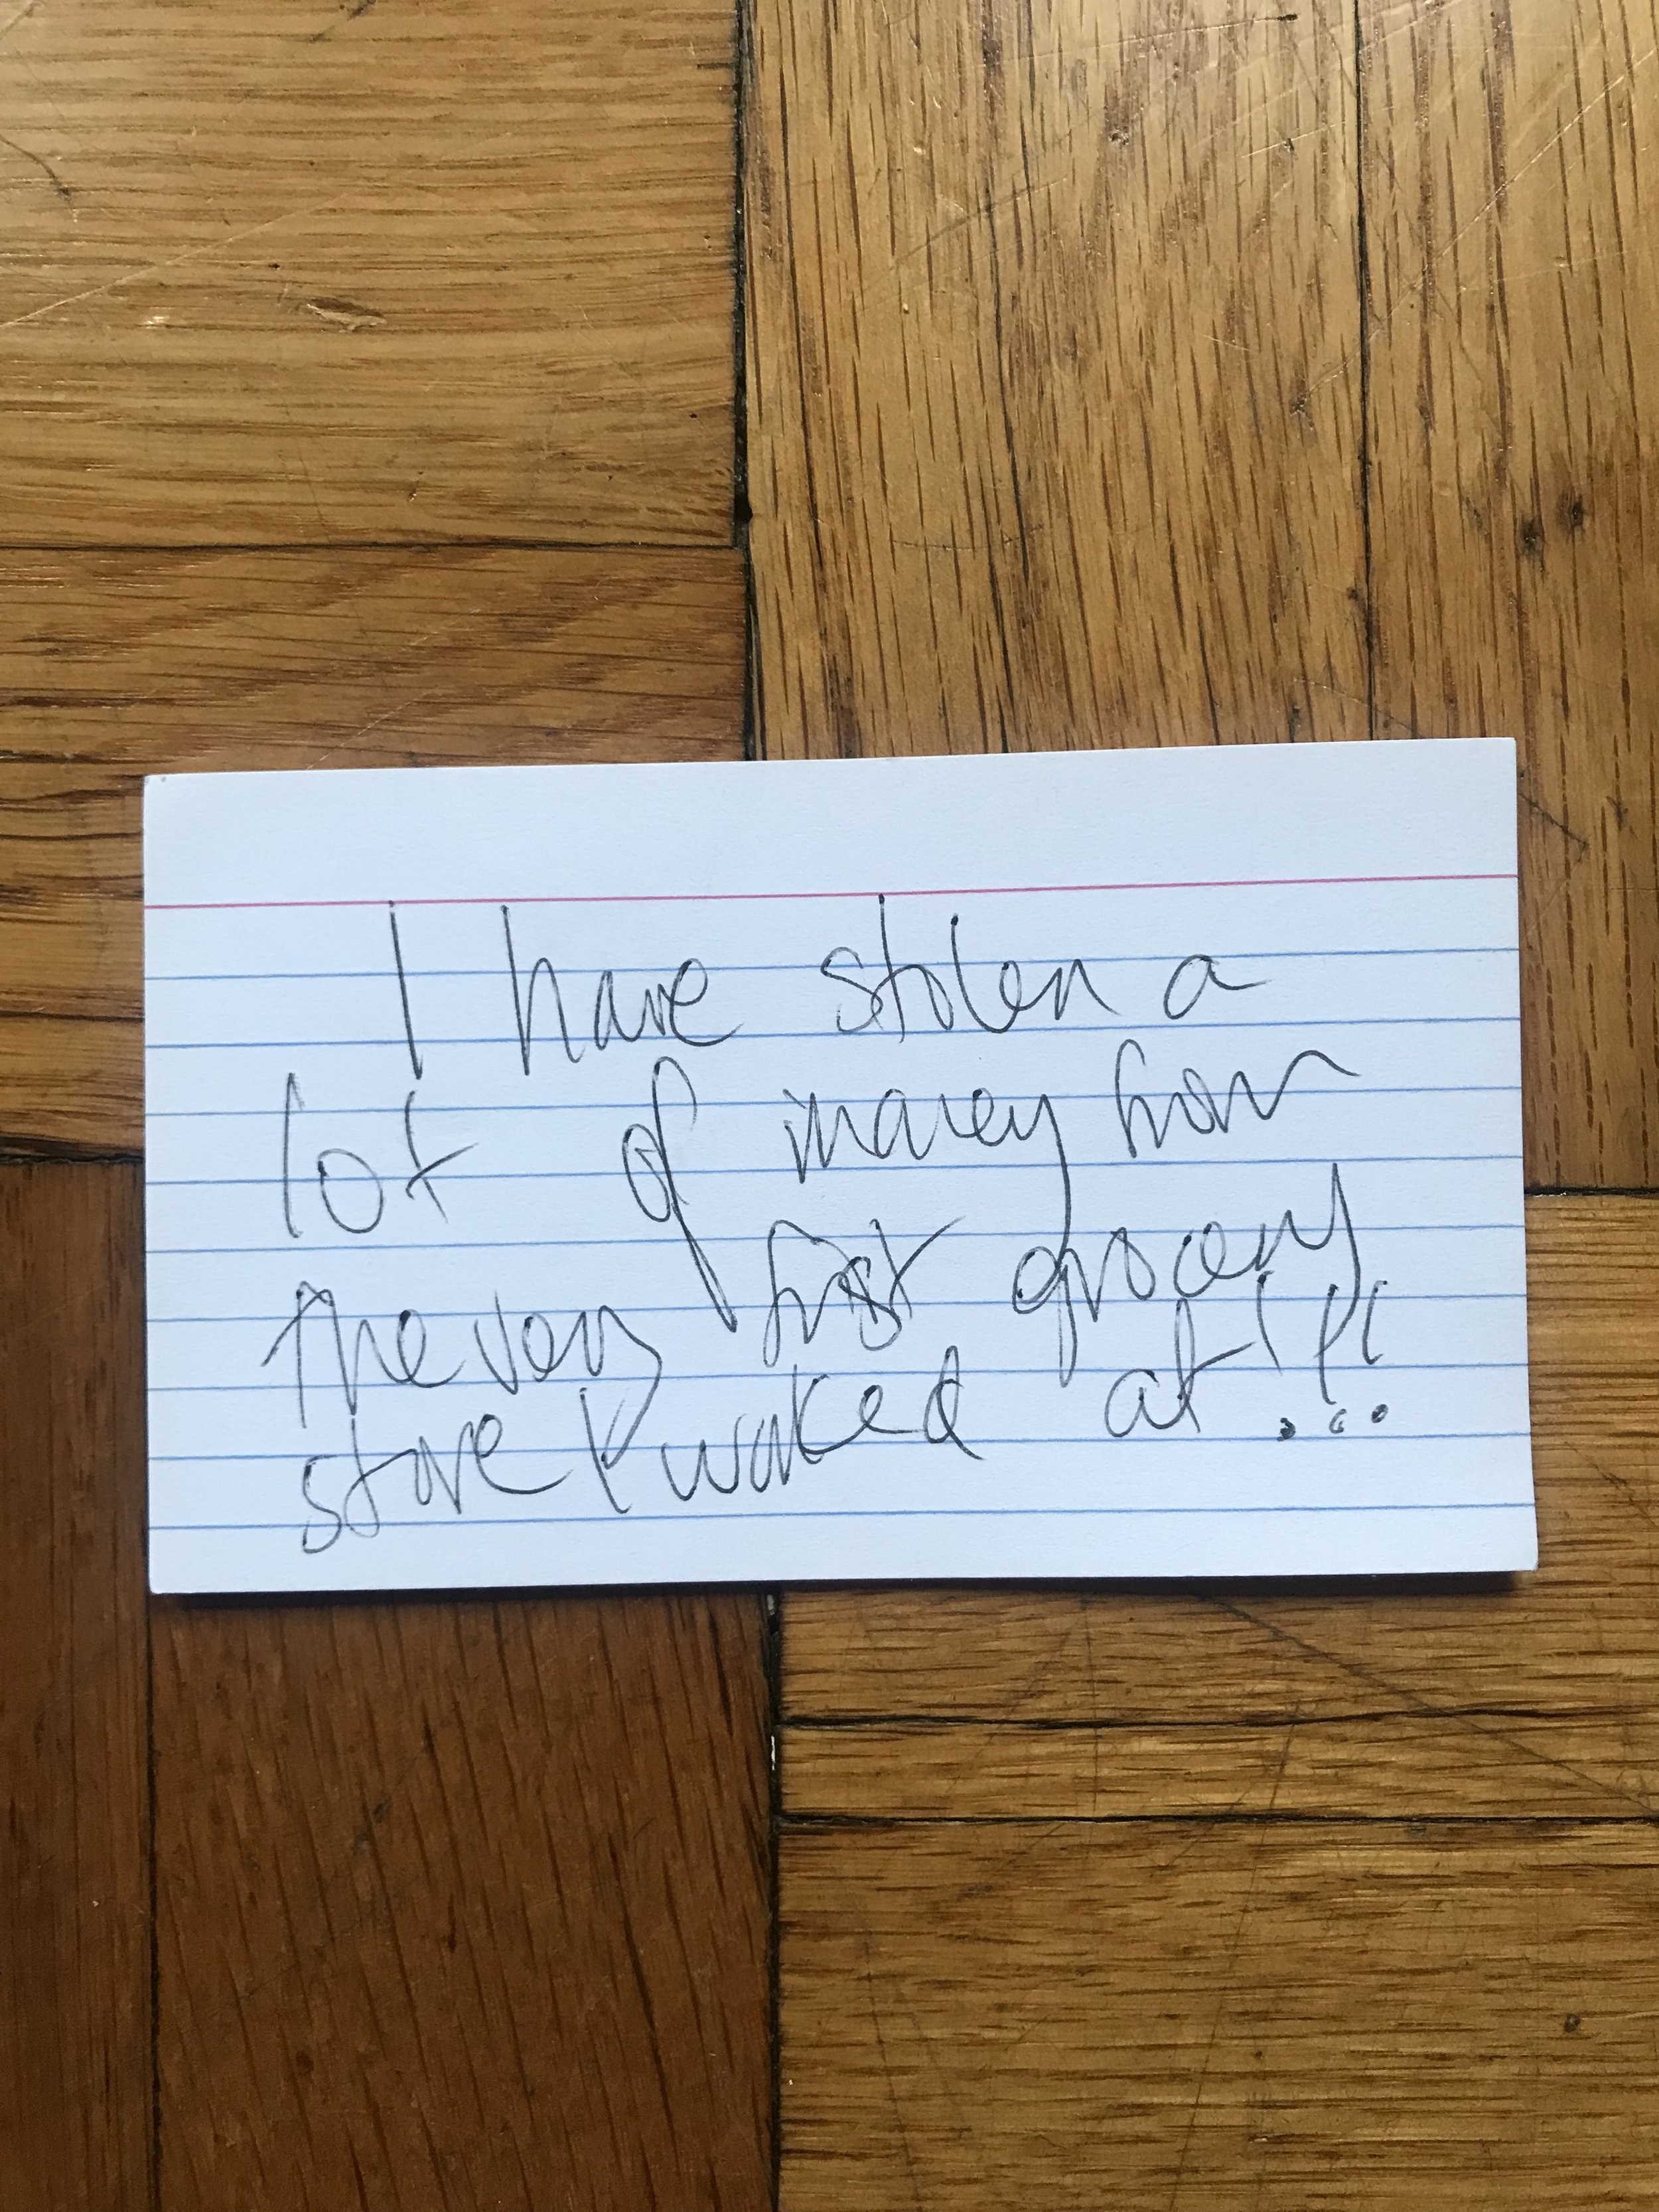 I have stolen a
lot of money from
the very first grocery
store I worked at!!!